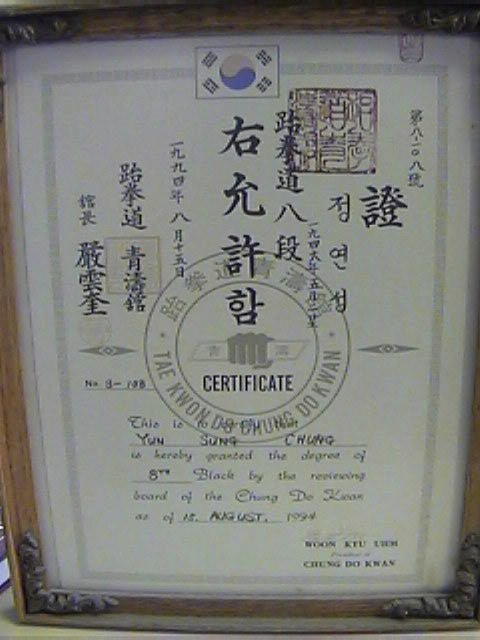 第八一〇八號
證
정연성
一九四六年五月二日生
跆拳道八段
右允許함
一九九四年八月十五日
跆拳道 青濤館
館長 嚴雲奎
跆拳道青濤館
青濤
TAE KWON DO CHUNG DO KWAN
CERTIFICATE
No. 8-108
This is to certify that
YUN SUNG CHUNG
is hereby granted the degree of
8TH Black by the reviewing
board of the Chung Do Kwan
as of 15. AUGUST. 1994
WOON KYU UHM
President of
CHUNG DO KWAN